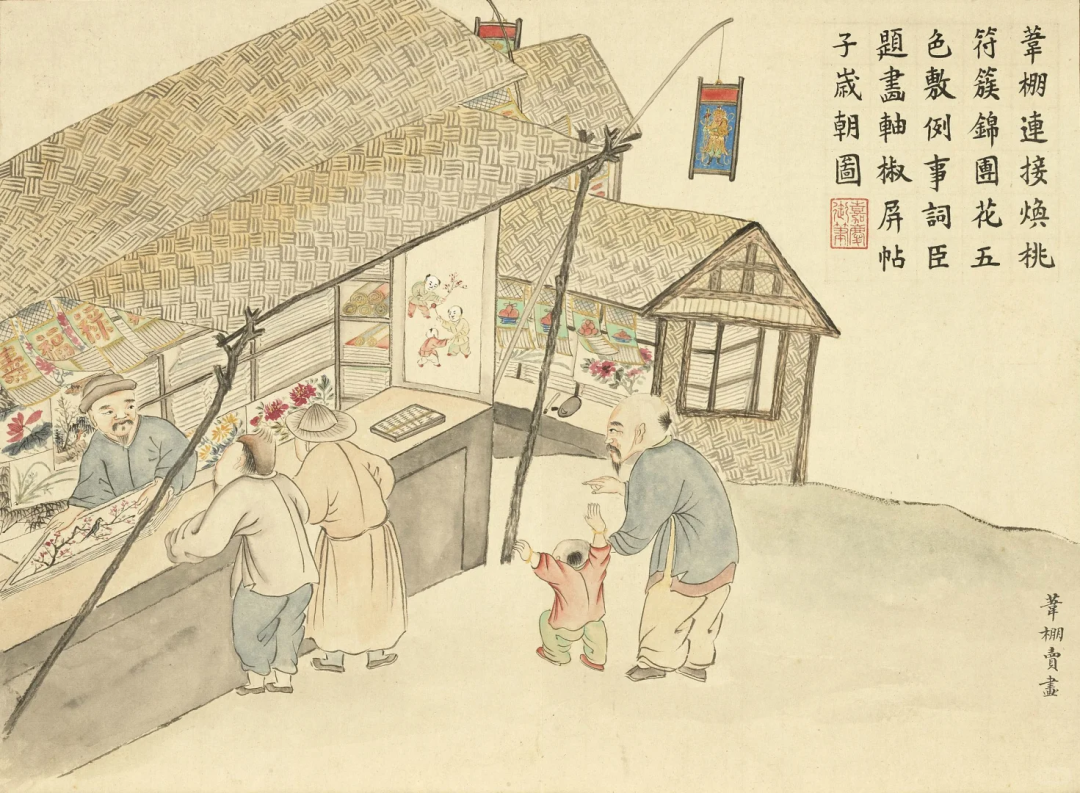 葦棚連接煥桃
符簇錦團花五
色敷例事詞臣
題畫軸椒屏帖
子歲朝圖
嘉慶
御筆
葦棚賣畫
祿
福
喜